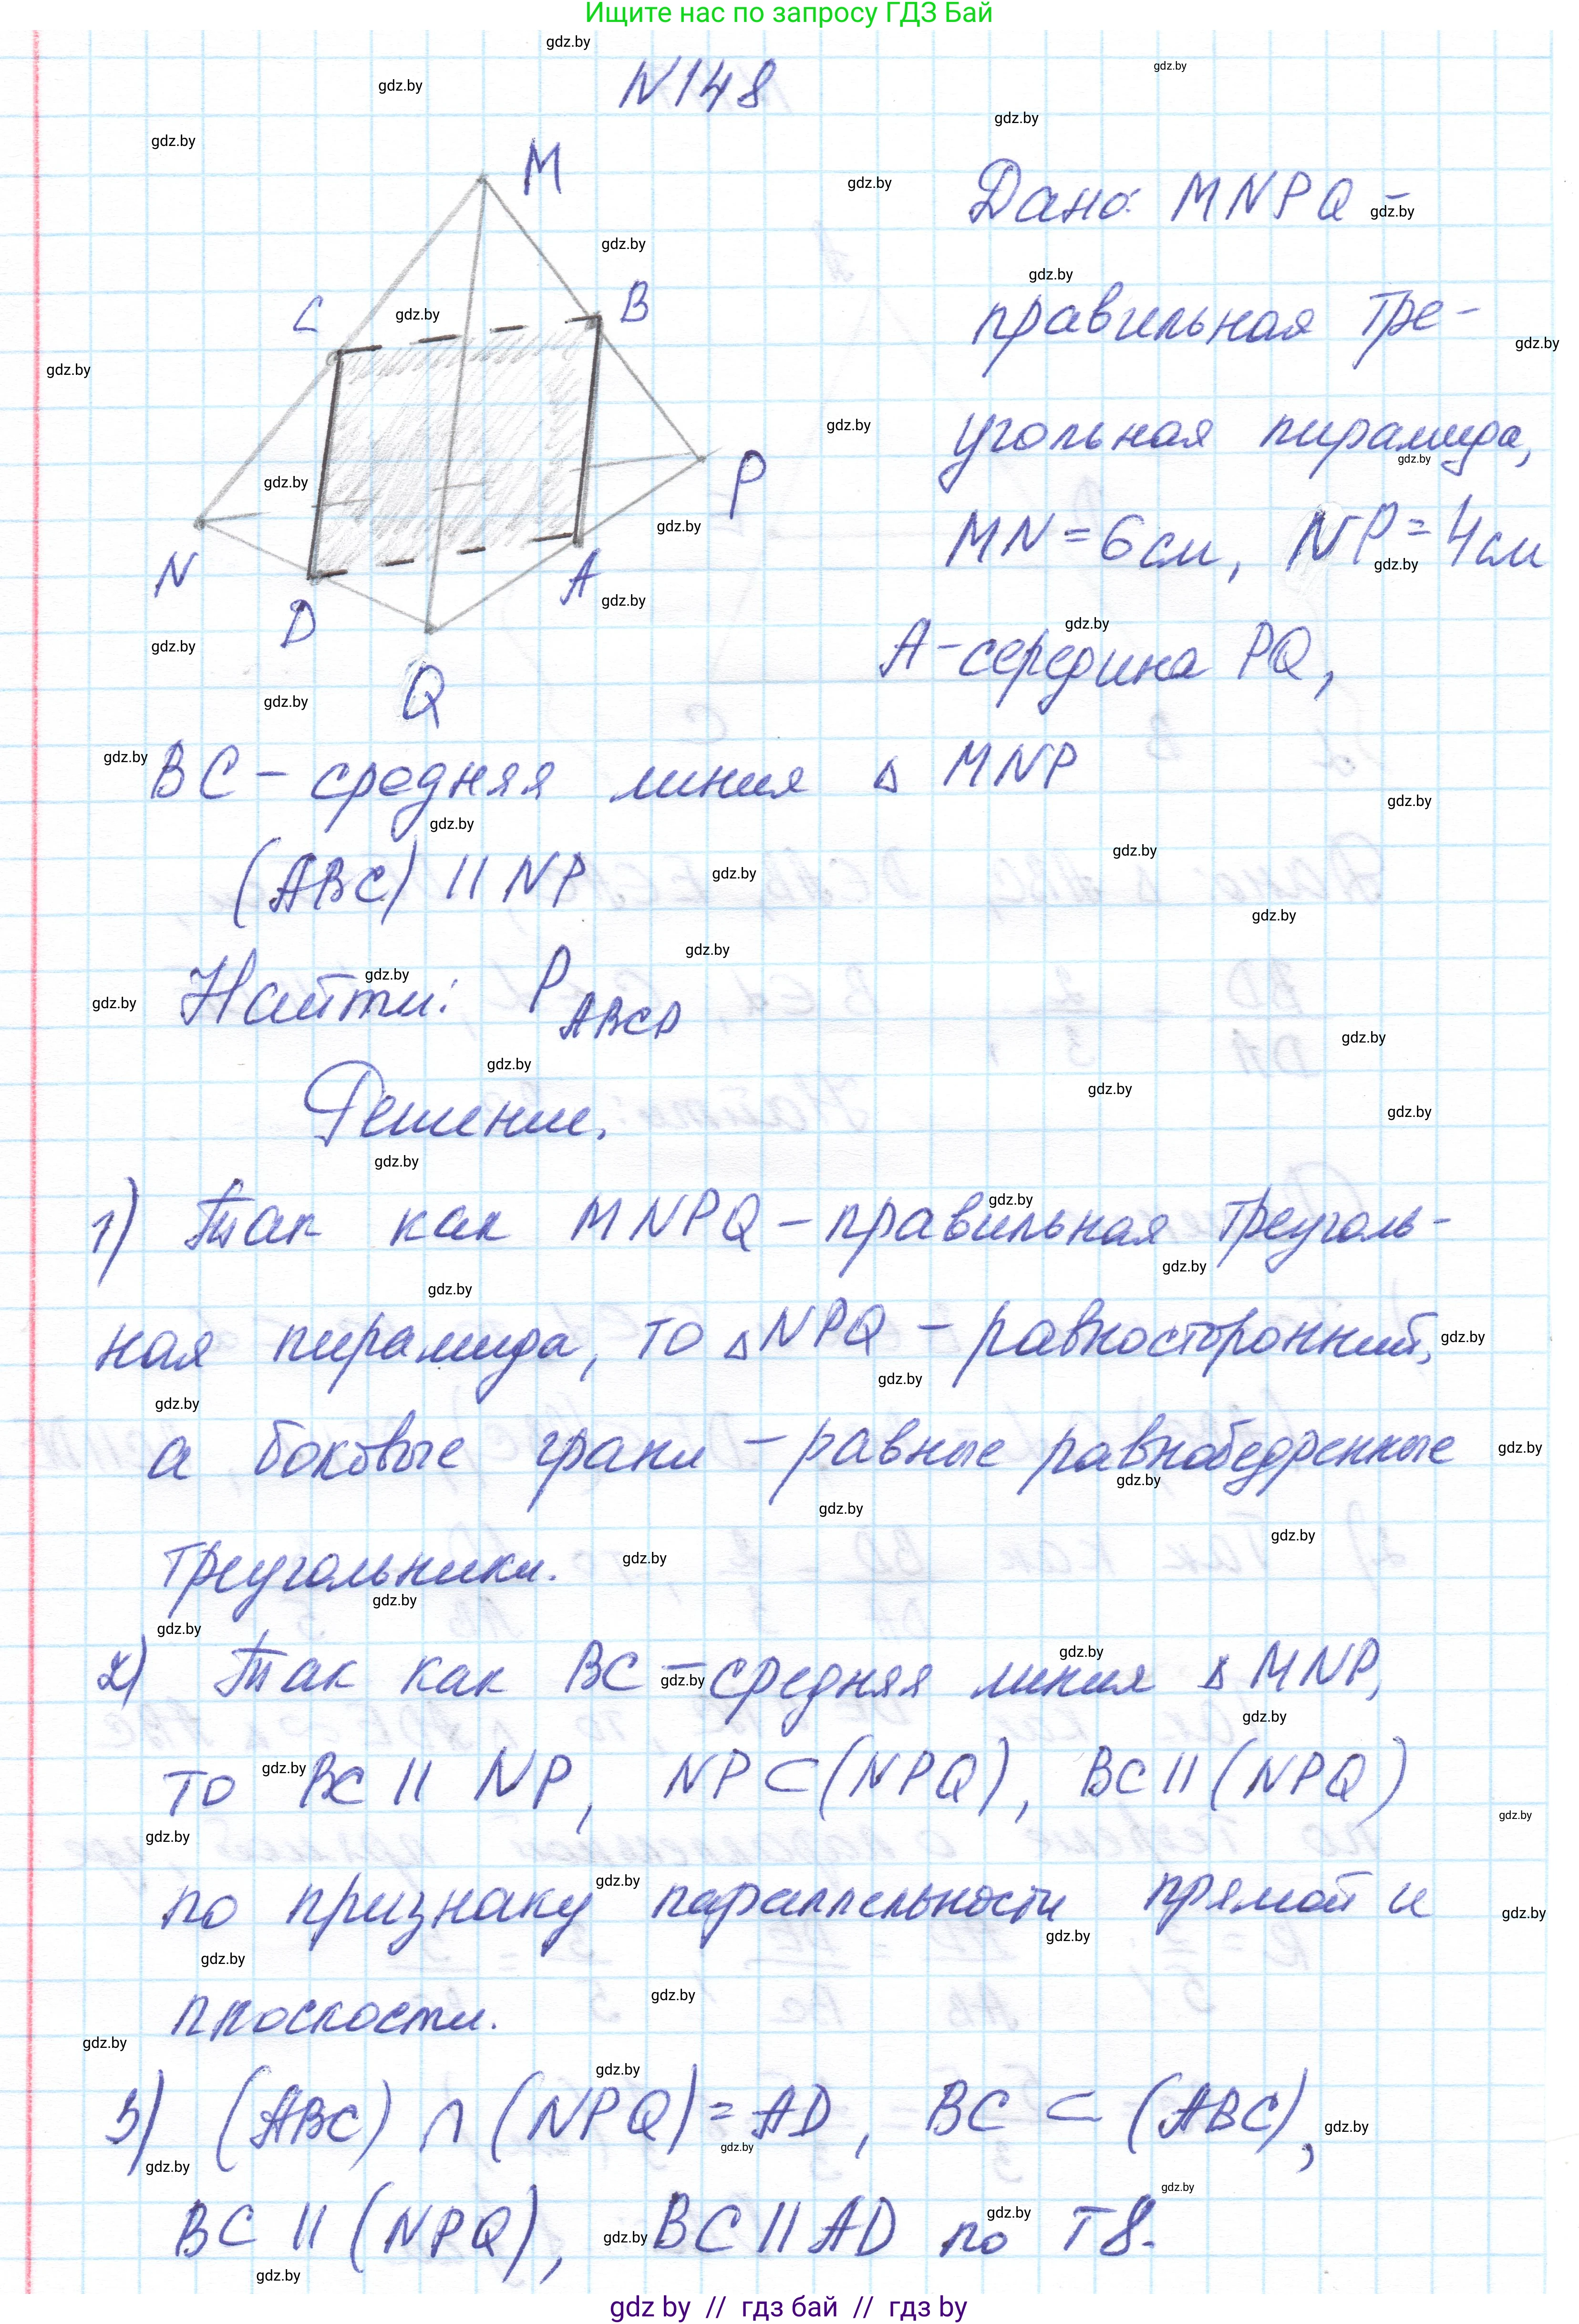 Ищите нас по запросу ГДЗ Бай
N148
M
C
B
N
P
D
A
Q
Дано: MNPQ –
правильная тре-
угольная пирамида,
MN = 6 см, NP = 4 см
A – середина PQ,
BC – средняя линия △ MNP
(ABC) || NP
Найти: P ABCD
Решение.
1) Так как MNPQ – правильная треуголь-
ная пирамида, то △NPQ – равносторонний,
а боковые грани – равные равнобедренные
треугольники.
2) Так как BC – средняя линия △ MNP,
то BC || NP, NP ⊂ (NPQ), BC || (NPQ)
по признаку параллельности прямой и
плоскости.
3) (ABC) ∩ (NPQ) = AD, BC ⊂ (ABC),
BC || (NPQ), BC || AD по Т8.
gdz by // гдз бай // гдз by